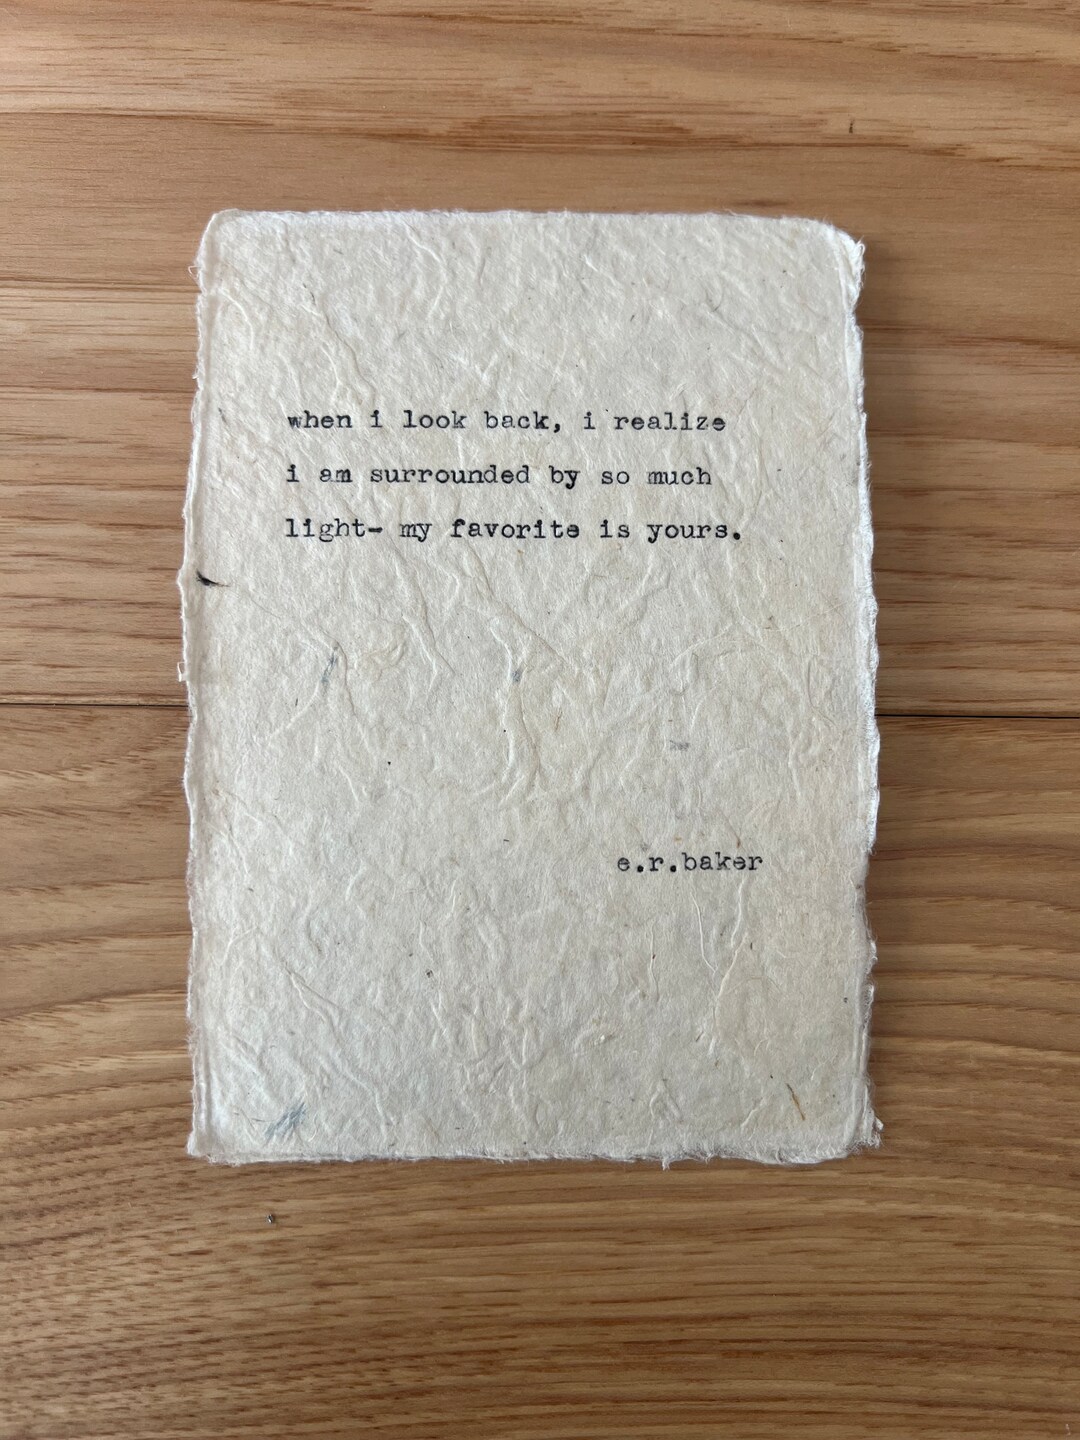 when i look back, i realize
i am surrounded by so much
light- my favorite is yours.
e.r.baker